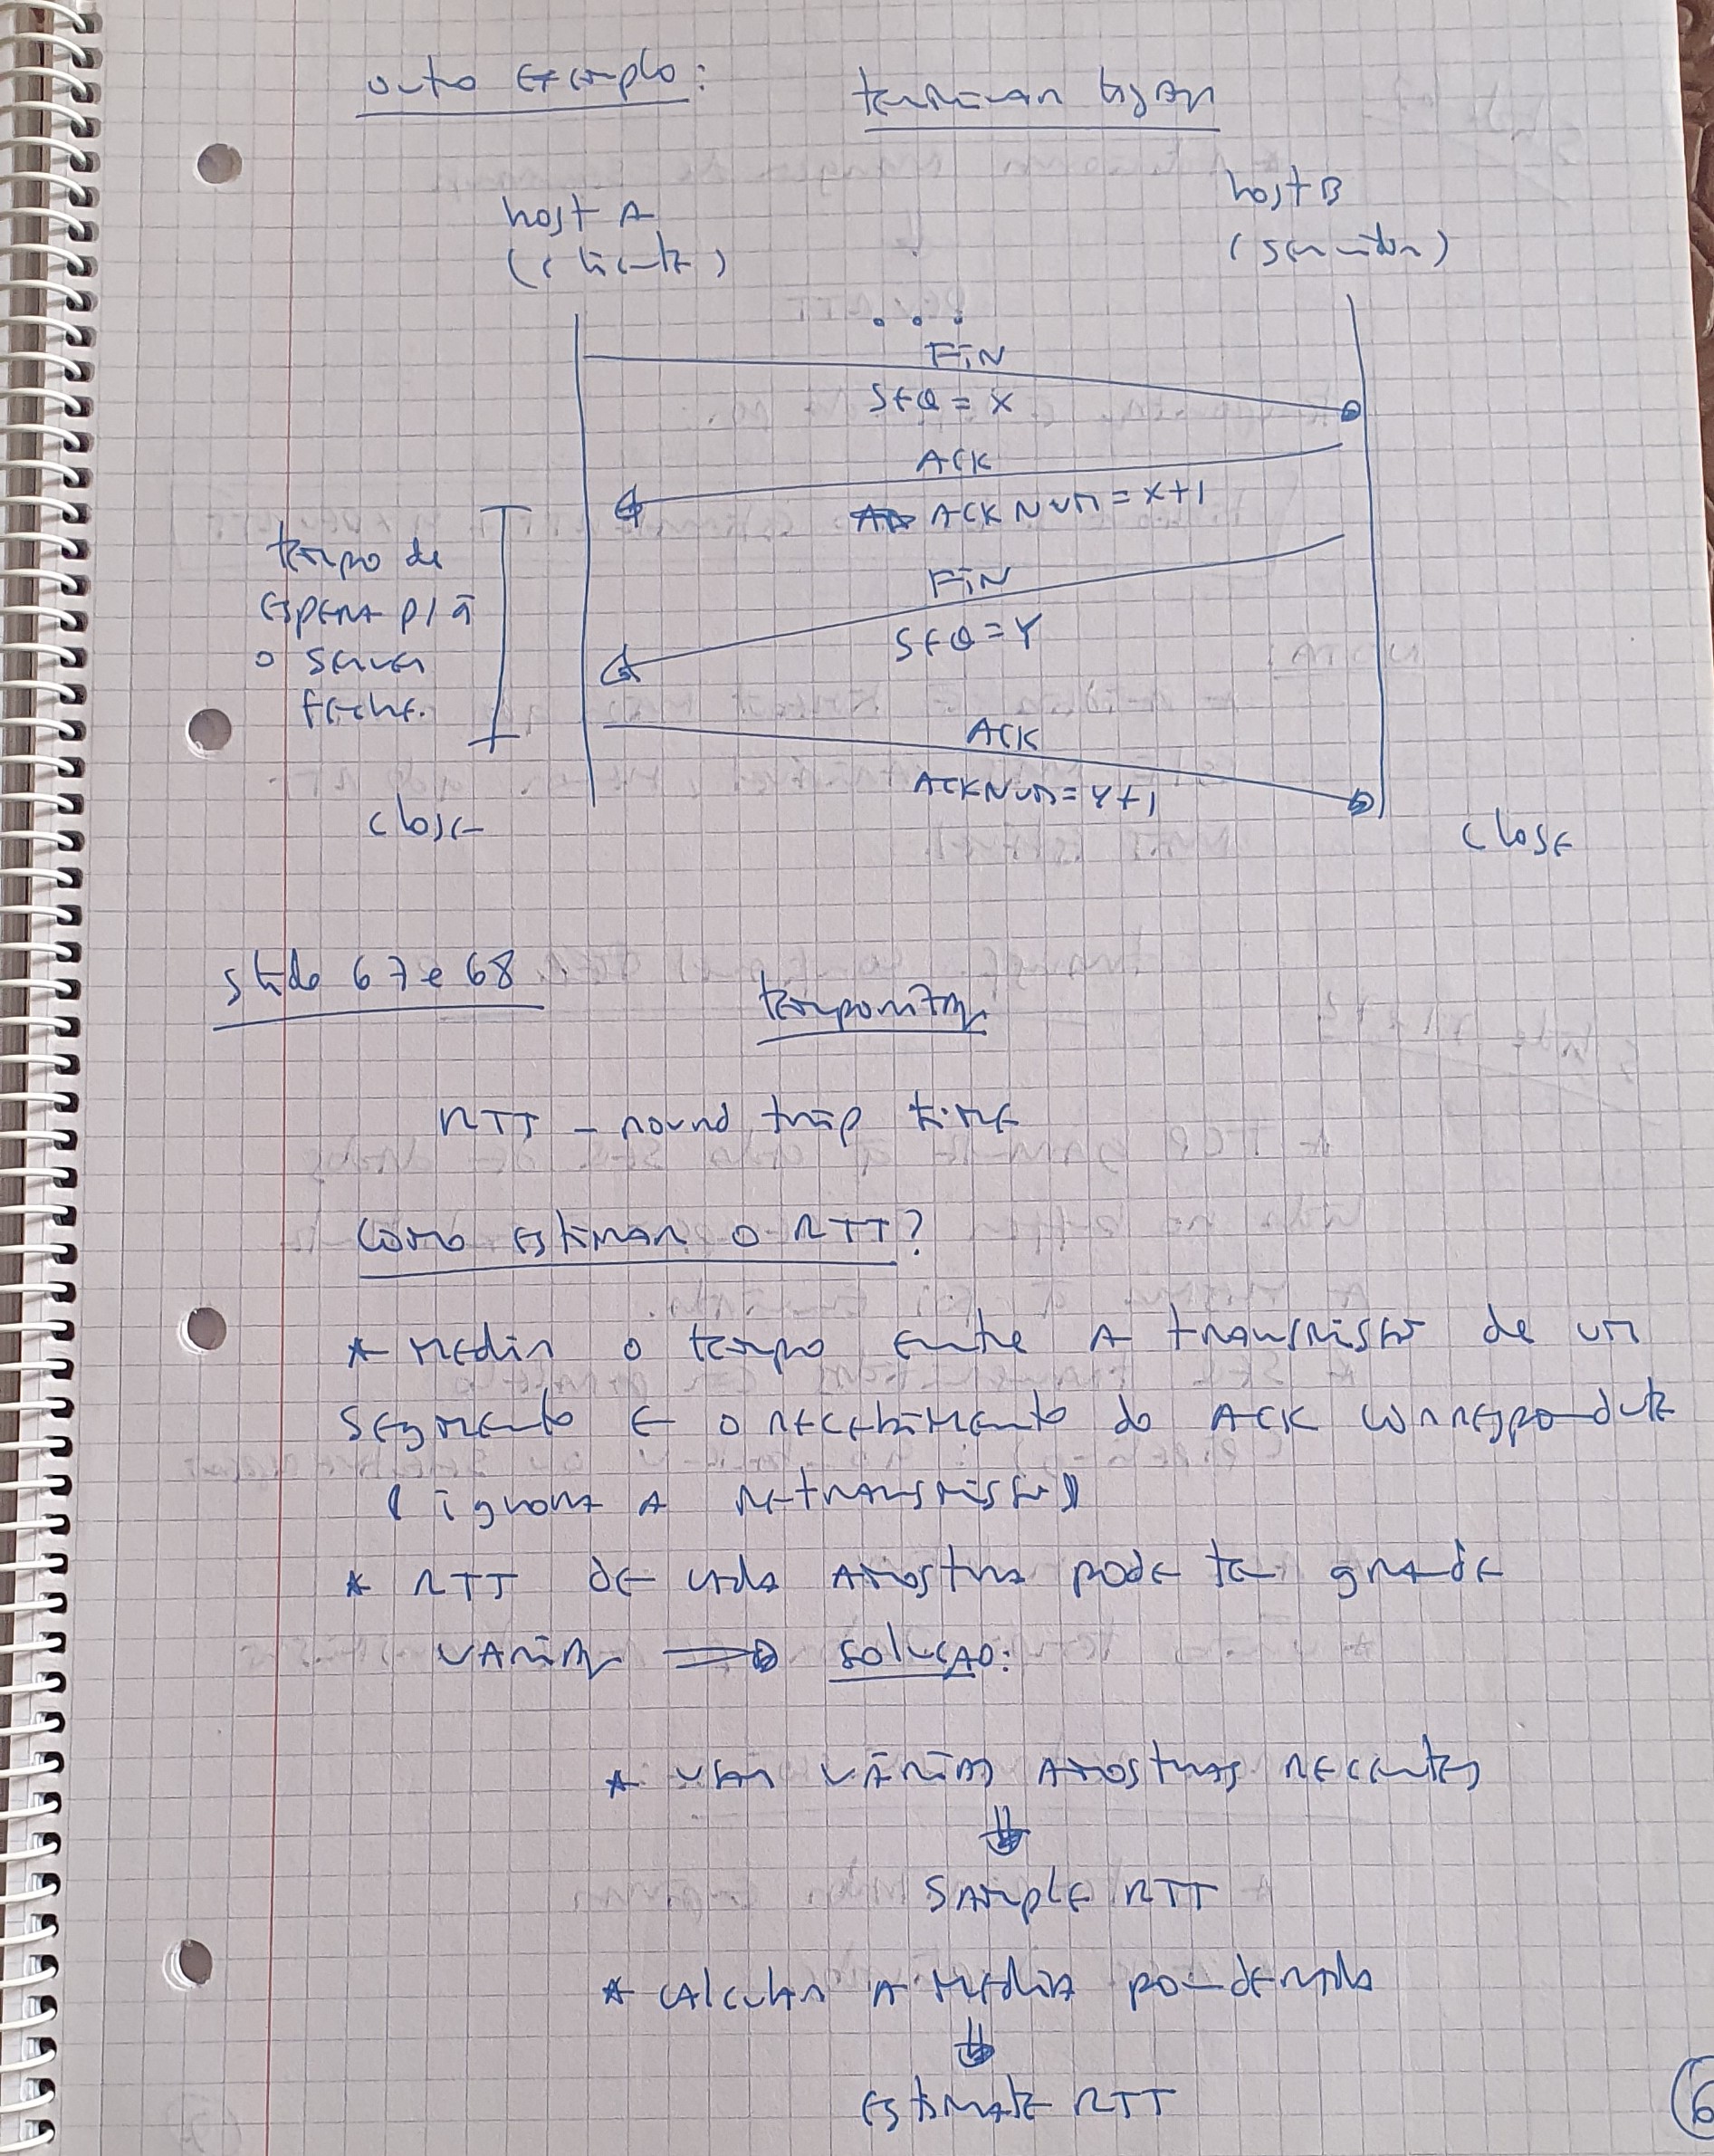 outro exemplo:
terminar ligaç
host A
(cliente)
host B
(servidor)
...
FIN
SEQ = X
ACK
ACKNUM = X+1
tempo de
espera p/ q̄
o server
feche.
FIN
SEQ = Y
ACK
ACKNUM = Y+1
close
close
slide 67 e 68
temporizaç
RTT - round trip time
Como estimar o RTT?
* medir o tempo entre a transmissão de um
segmento e o recebimento do ACK correspondente
(ignora a retransmissão)
* RTT de cada amostra pode ter grande
variaç ⟹ solução:
* usar várias amostras recentes
⇓
SAMPLE RTT
* calcular a média ponderada
⇓
Estimate RTT
6